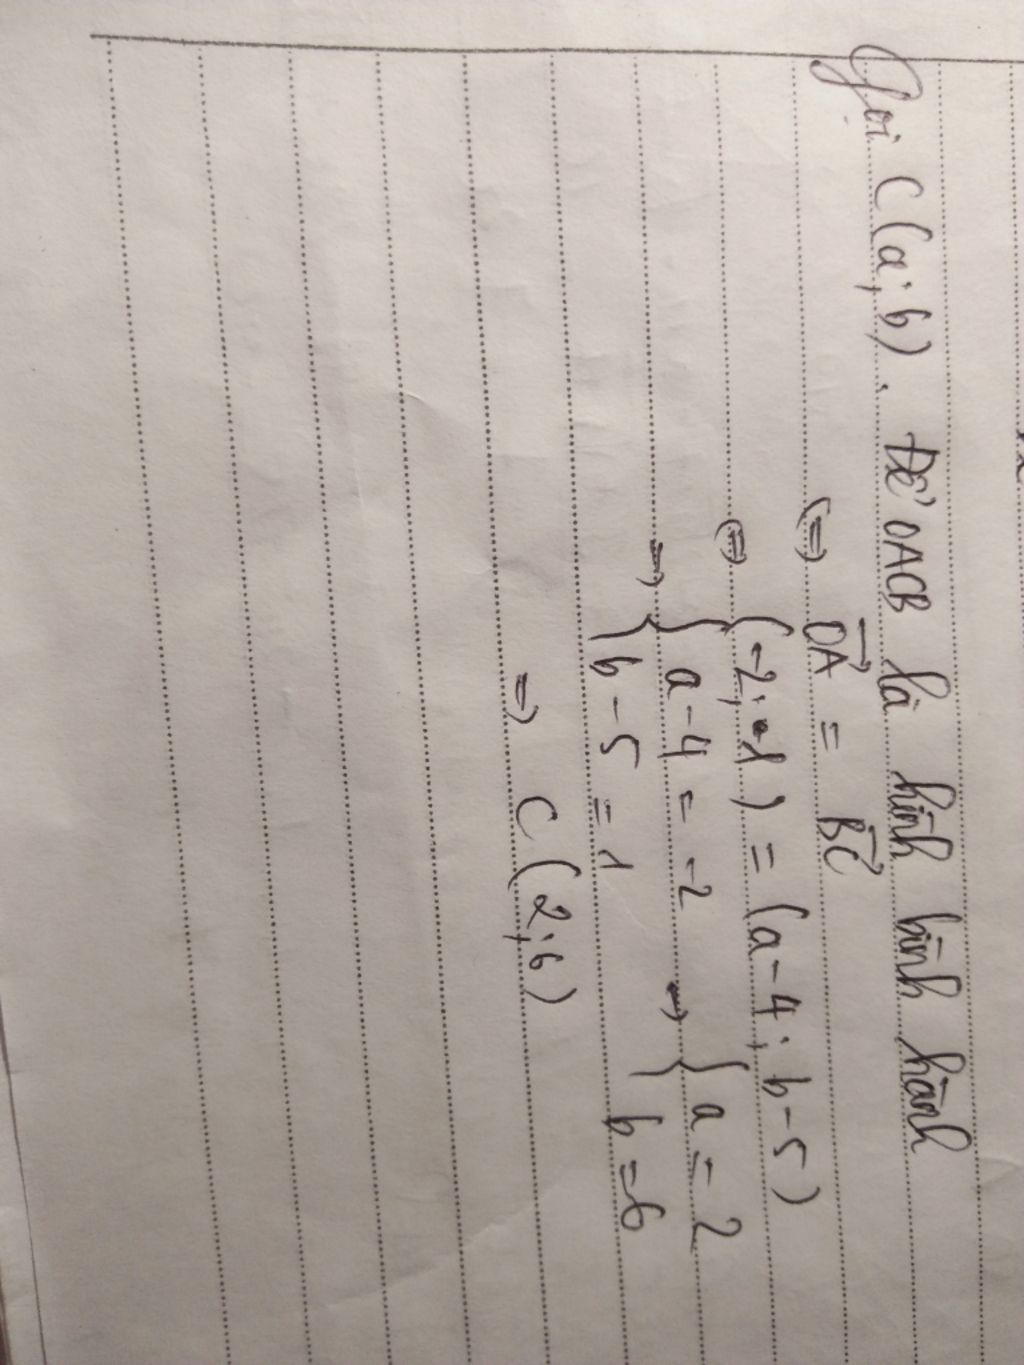 Gọi C(a;b). Để OACB là hình bình hành
⇔ \overrightarrow{OA} = \overrightarrow{BC}
⇔ (-2; 1) = (a-4; b-5)
⇒ { a-4 = -2 ⇒ { a = 2
b-5 = 1 b = 6
⇒ C(2;6)